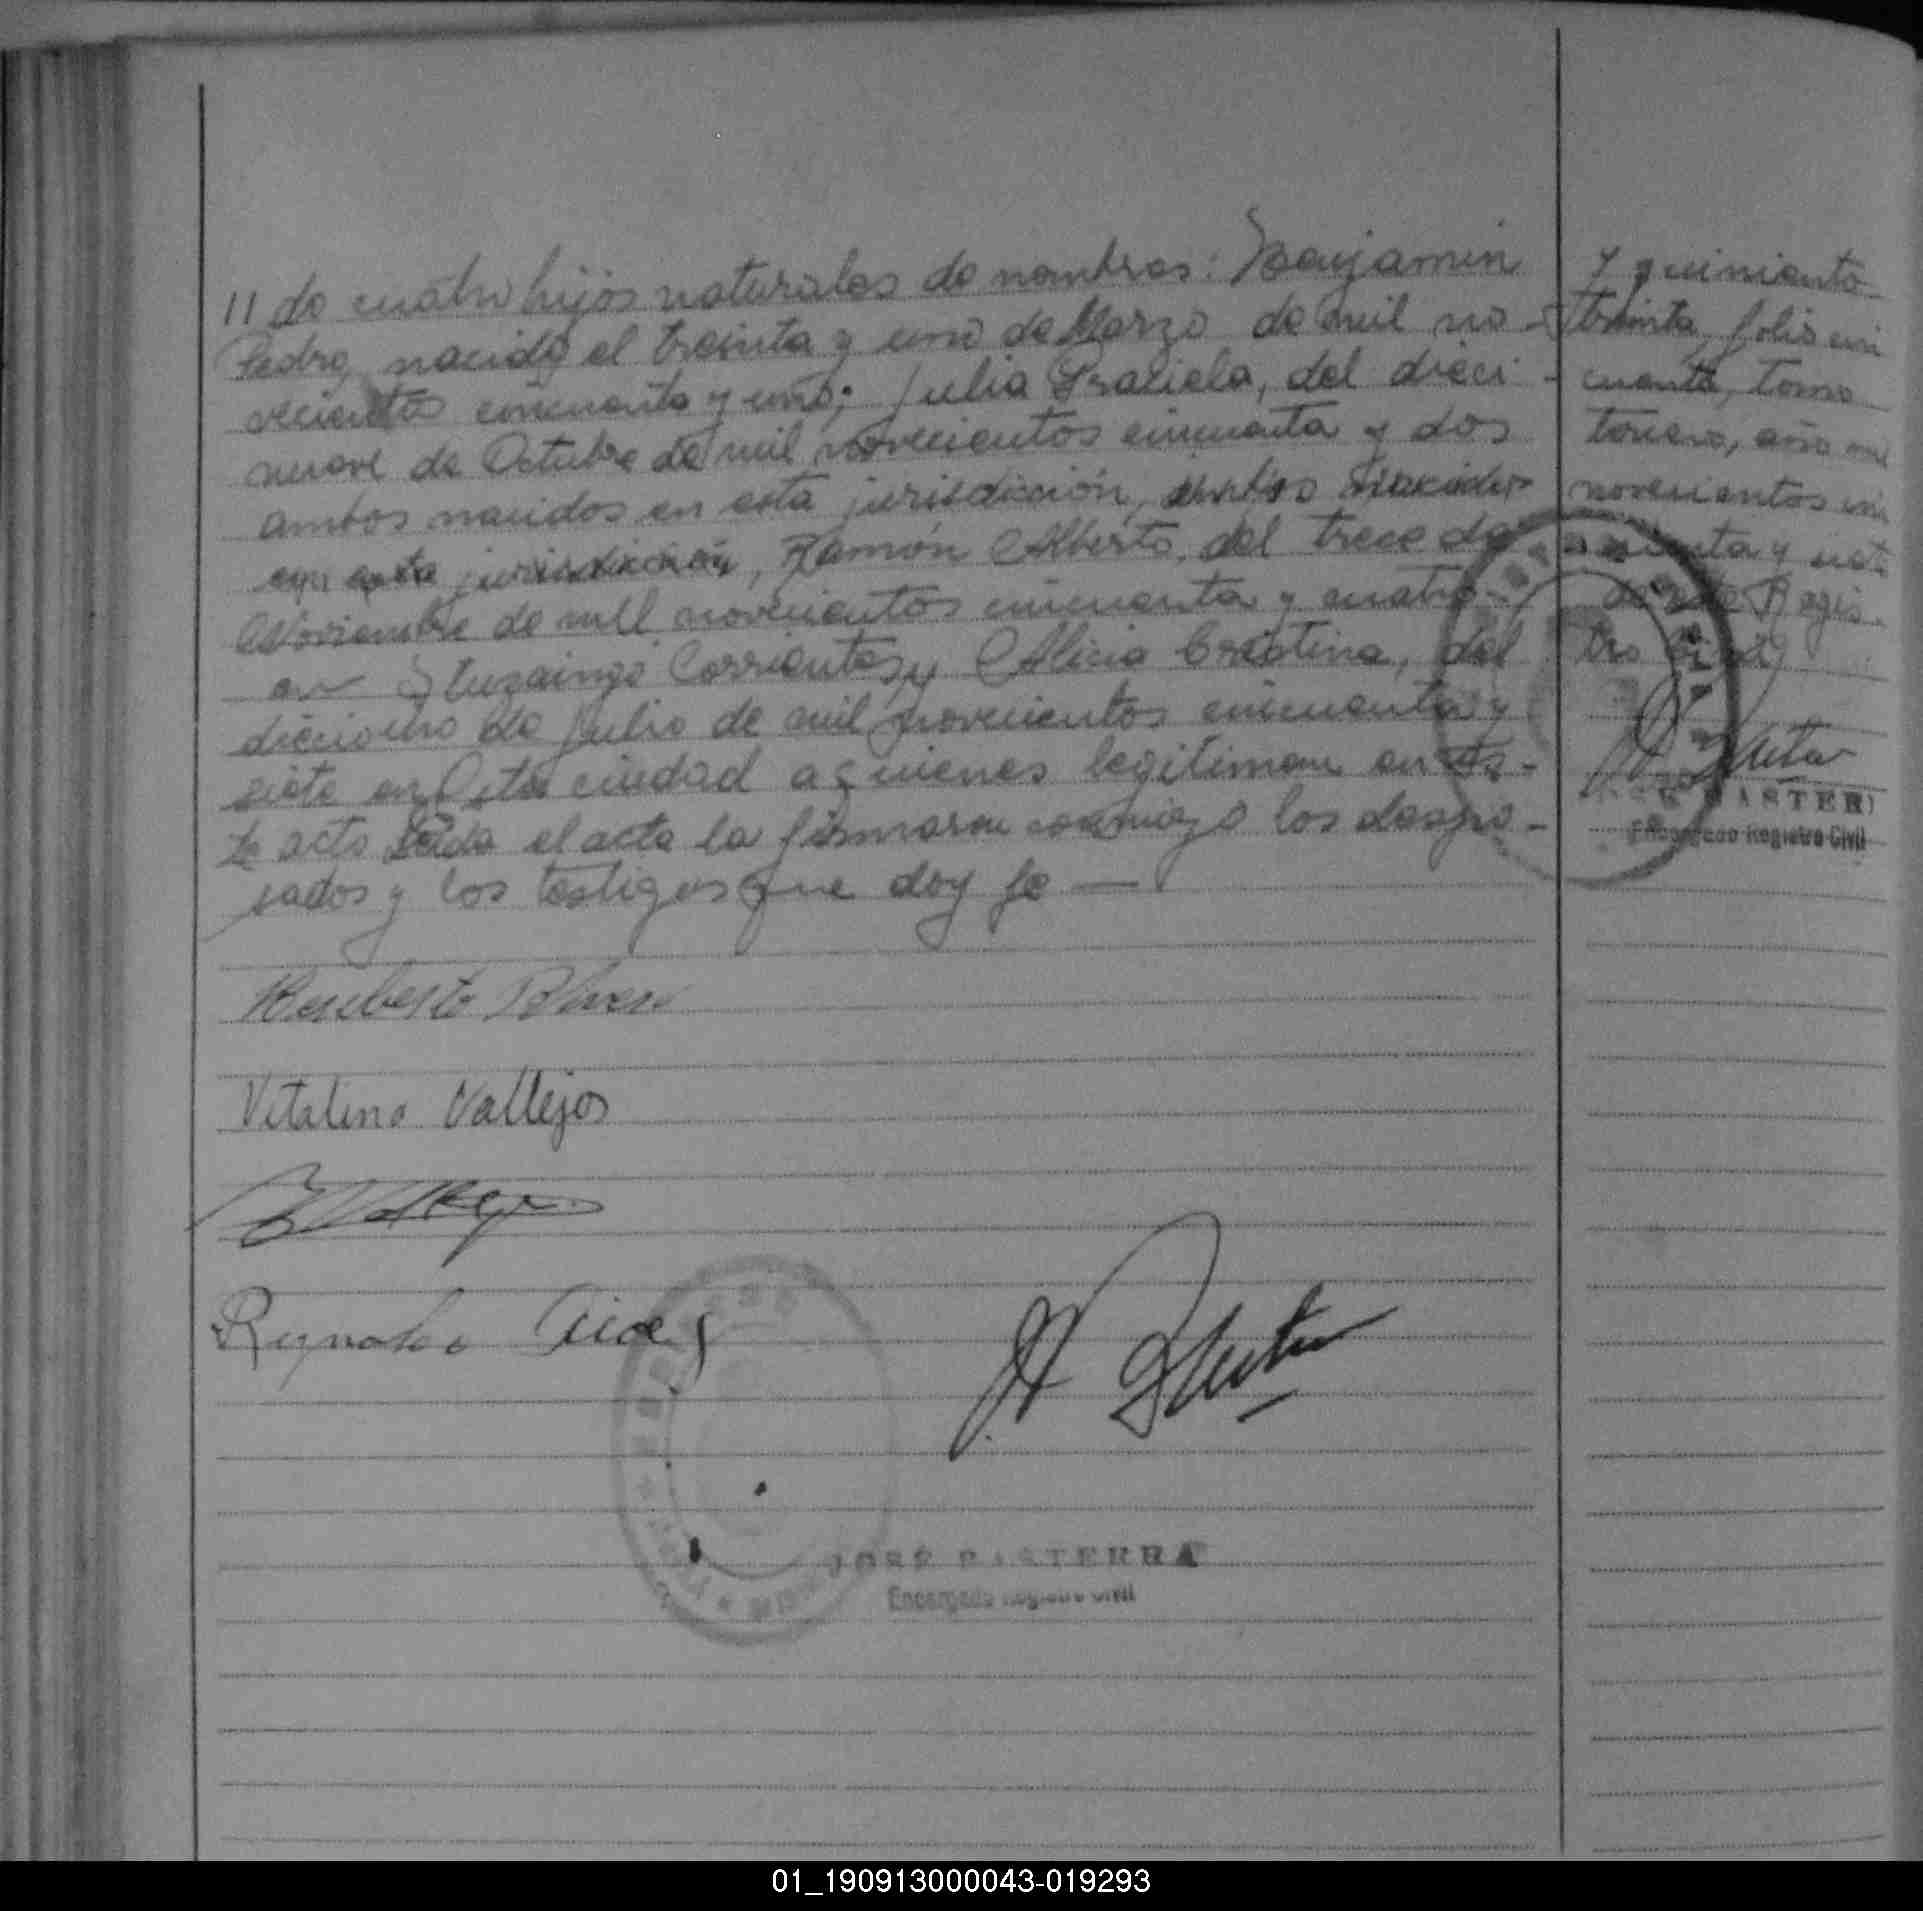 11 de cuatro hijos naturales de nombres: Benjamin
Pedro, nacido el treinta y uno de Marzo de mil no-
vecientos cincuenta y uno; Julia Graciela, del dieci-
nueve de Octubre de mil novecientos cincuenta y dos
ambos nacidos en esta jurisdicción, ambos nacidos
en esta jurisdicción, Ramón Alberto, del trece de
Noviembre de mil novecientos cincuenta y cuatro
en Ituzaingó Corrientes y Alicia Cristina, del
dieciocho de Julio de mil novecientos cincuenta y
siete en esta ciudad a quienes legitiman en es-
te acto Leida el acta la firmaron conmigo los despo-
sados y los testigos que doy fe —
Vitalino Vallejos
JOSÉ BASTERRA
Encargado Registro Civil
y quiniento
treinta, folio cin
cuenta, tomo
tercero, año mil
novecientos cin
cuenta y
de este Regis
tro Civil
BASTER
Encargado Registro Civil
01_190913000043-019293